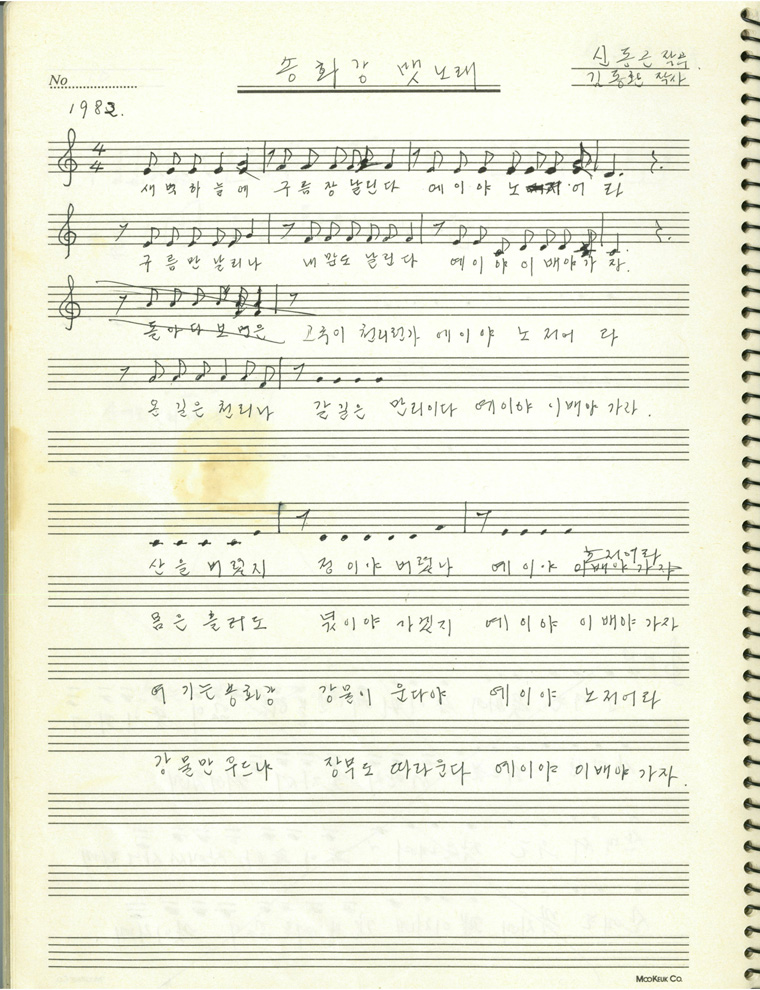 No
송화강 뱃노래
신동근 작곡
김동환 작사
1983.
4
4
새벽하늘에 구름장 날린다 에이야 노 어 라
구름만 날리나 내맘도 날린다 에이야 이배야 가 자.
돌아다 보면은 고국이 천리런가 에이야 노 저어 라
온 길은 천리나 갈길은 만리이다 에이야 이배야 가라.
산을 버렸지 정이야 버렸나 에이야 노저어라
이배야 가자
몸은 흘러도 넋이야 가겠지 에이야 이배야 가자
여기는 송화강 강물이 운다야 에이야 노저어라
강물만 우드냐 장부도 따라운다 에이야 이배야 가자.
MOOKEUK CO.